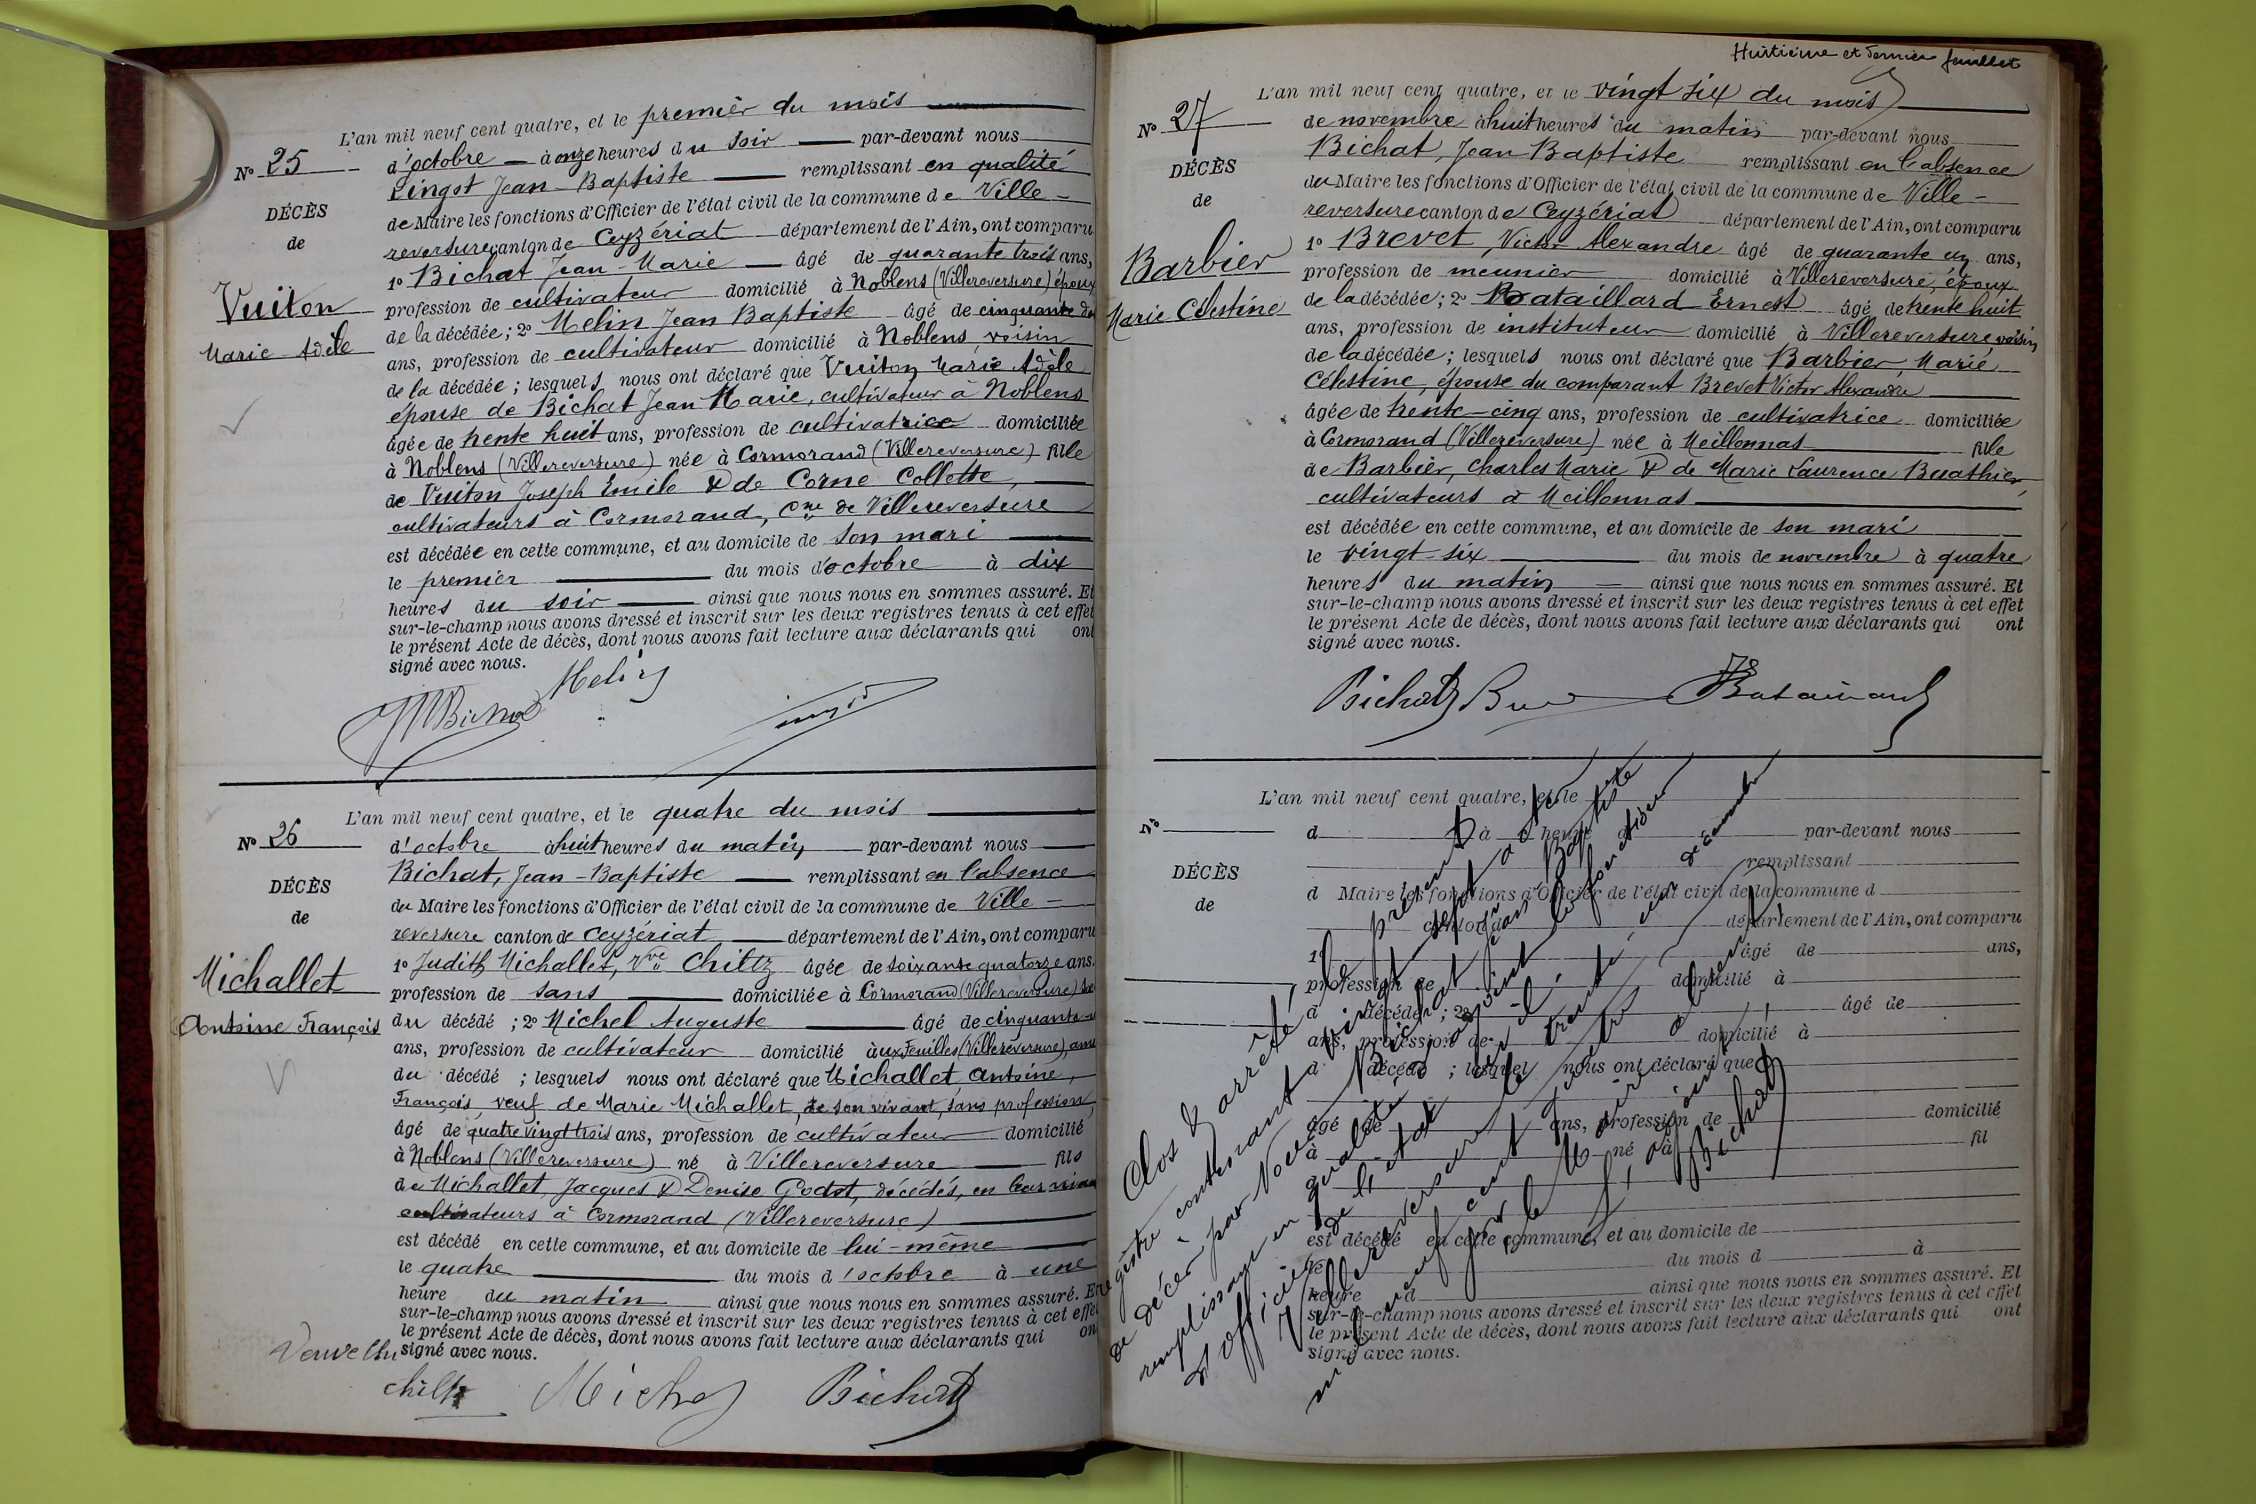 L'an mil neuf cent quatre, et le premier du mois
N° 25
d'octobre à onze heures du soir par-devant nous
Pingot Jean-Baptiste remplissant en qualité
DÉCÈS
de Maire les fonctions d'Officier de l'état civil de la commune de Ville-
de
reversure canton de Ceyzériat département de l'Ain, ont comparu
1° Bichat Jean-Marie âgé de quarante trois ans,
Vuiton
profession de cultivateur domicilié à Noblens (Villereversure) époux
de la décédée; 2° Melin Jean Baptiste âgé de cinquante
Marie Adèle
ans, profession de cultivateur domicilié à Noblens, voisin
de la décédée; lesquels nous ont déclaré que Vuiton Marie Adèle
épouse de Bichat Jean Marie, cultivateur à Noblens
âgée de trente huit ans, profession de cultivatrice domiciliée
à Noblens (Villereversure) née à Cormorand (Villereversure) fille
de Vuiton Joseph Emile & de Corne Collette,
cultivateurs à Cormorand, Cne de Villereversure
est décédée en cette commune, et au domicile de son mari
le premier du mois d'octobre à dix
heures du soir ainsi que nous nous en sommes assuré. Et
sur-le-champ nous avons dressé et inscrit sur les deux registres tenus à cet effet
le présent Acte de décès, dont nous avons fait lecture aux déclarants qui ont
signé avec nous.
Melin
JMBichat
L'an mil neuf cent quatre, et le quatre du mois
N° 26
d'octobre à huit heures du matin par-devant nous
Bichat, Jean-Baptiste remplissant en l'absence
DÉCÈS
du Maire les fonctions d'Officier de l'état civil de la commune de Ville-
de
reversure canton de Ceyzériat département de l'Ain, ont comparu
1° Judith Michallet, Vve Chiltz âgée de soixante quatorze ans.
Michallet
profession de sans domiciliée à Cormorand (Villereversure)
Antoine François
du décédé; 2° Michel Auguste âgé de cinquante
ans, profession de cultivateur domicilié aux Feuilles (Villereversure), ami
du décédé; lesquels nous ont déclaré que Michallet, Antoine,
François, veuf de Marie Michallet, de son vivant, sans profession,
âgé de quatre vingt trois ans, profession de cultivateur domicilié
à Noblens (Villereversure) né à Villereversure fils
de Michallet, Jacques & Denise Godot, décédés, en leur vivant
cultivateurs à Cormorand (Villereversure)
est décédé en cette commune, et au domicile de lui-même
le quatre du mois d'octobre à une
heure du matin ainsi que nous nous en sommes assuré. Et
sur-le-champ nous avons dressé et inscrit sur les deux registres tenus à cet effet
le présent Acte de décès, dont nous avons fait lecture aux déclarants qui ont
signé avec nous.
Veuve
Chiltz Michel Bichat
Huitième et dernier feuillet
L'an mil neuf cent quatre, et le vingt six du mois
N° 27
de novembre à huit heures du matin par-devant nous
Bichat, Jean Baptiste remplissant en l'absence
DÉCÈS
du Maire les fonctions d'Officier de l'état civil de la commune de Ville-
de
reversure canton de Ceyzériat département de l'Ain, ont comparu
1° Brevet Victor Alexandre âgé de quarante un ans,
Barbier
profession de meunier domicilié à Villereversure, époux
de la décédée; 2° Bataillard Ernest âgé de trente huit
Marie Célestine
ans, profession de instituteur domicilié à Villereversure, voisin
de la décédée; lesquels nous ont déclaré que Barbier, Marie
Célestine, épouse du comparant Brevet Victor Alexandre
âgée de trente-cinq ans, profession de cultivatrice domiciliée
à Cormorand (Villereversure) née à Meillonnas fille
de Barbier, Charles Marie & de Marie Laurence Buathier,
cultivateurs à Meillonnas
est décédée en cette commune, et au domicile de son mari
le vingt-six du mois de novembre à quatre
heures du matin ainsi que nous nous en sommes assuré. Et
sur-le-champ nous avons dressé et inscrit sur les deux registres tenus à cet effet
le présent Acte de décès, dont nous avons fait lecture aux déclarants qui ont
signé avec nous.
Bichat Bataillard
L'an mil neuf cent quatre, et le
N°
d à heure par-devant nous
remplissant
DÉCÈS
d Maire les fonctions d'Officier de l'état civil de la commune d
de
canton d département de l'Ain, ont comparu
1° âgé de ans,
profession de domicilié à
d décédé; 2° âgé de
ans, profession de domicilié à
d décédé; lesquel nous ont déclaré que
âgé de ans, profession de domicilié
à né à fil
est décédé en cette commune, et au domicile de
le du mois d à
heure d ainsi que nous nous en sommes assuré. Et
sur-le-champ nous avons dressé et inscrit sur les deux registres tenus à cet effet
le présent Acte de décès, dont nous avons fait lecture aux déclarants qui ont
signé avec nous.
Clos & arrêté, le présent
registre contenant vingt sept actes
de décès par Nous Bichat Jean Baptiste
remplissant en qualité d'adjoint les fonctions
d'officier de l'état civil.
Villereversure le trente un décembre
mil neuf cent quatre
Pour le Maire absent,
l'adjoint,
Bichat